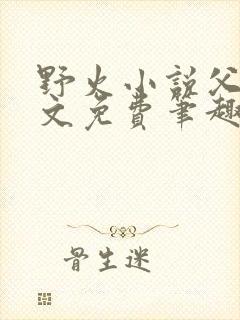 野火小说父
文免费笔趣
骨生迷